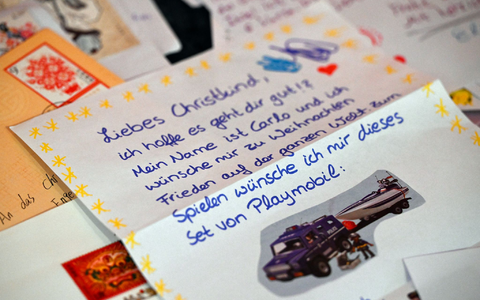 Liebes Christkind,
ich hoffe es geht dir gut!?
Mein Name ist Carlo und ich
wünsche mir zu Weihnachten
Frieden auf der ganzen Welt. Zum
Spielen wünsche ich mir dieses
Set von Playmobil:
An das Chri
Enge